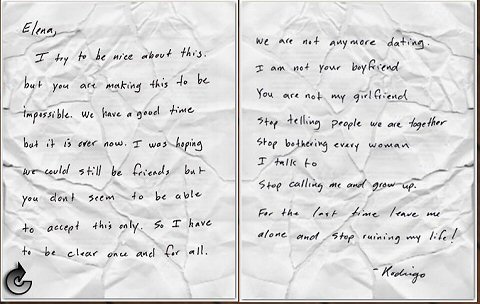 Elena,
I try to be nice about this.
but you are making this to be
impossible. We have a good time
but it is over now. I was hoping
we could still be friends but
you dont seem to be able
to accept this only. So I have
to be clear once and for all.
we are not anymore dating.
I am not your boyfriend
You are not my girlfriend
Stop telling people we are together
Stop bothering every woman
I talk to
Stop calling me and grow up.
For the last time leave me
alone and stop ruining my life!
- Rodrigo